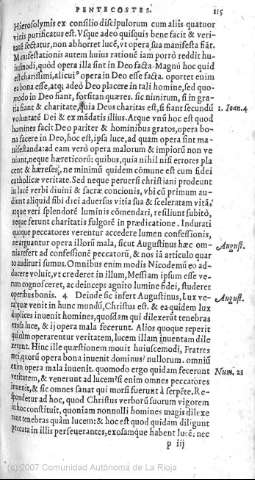 PENTECOSTES. 115
Hierosolymis ex consilio discipulorum cum aliis quatuor
vitis purificatus est. Vsque adeo quisquis bene facit & veri-
tatē sectatur, non abhorret lucē, vt opera sua manifesta fiāt.
Manifestationis autem huius rationē iam porrò reddit hu-
iusmodi, quòd opera illa sint in Deo facta. Magnū hoc quid
est charissimi, alicui' opera in Deo esse facta. oportet enim
ea bona esse, atq; adeò Deo placere in tali homine, sed quo-
modo in Deo fiant, forsitan quæres. sic nimirum, si in gra-
tia fiant & charitate, quia Deus charitas est, si fiant secundū 1. Ioan. 4
voluntatē Dei & ex mādatis illius. Atque vnū hoc est quod
hominē facit Deo pariter & hominibus gratos, opera bo-
na facere in Deo, hoc est, ipsa luce, ad quam opera sint ma-
nifestanda: ad eam verò opera malorum & impiorū non ve
niunt, neque hæreticorū: quibus, quia nihil nisi errores pla
cent & hæreses, ne minimū quidem cōmune est cum fidei
catholicæ veritate. Sed neque peruersi christiani prodeunt
in lucē verbi diuini & sacræ concionis, vbi cū primum au-
diunt aliquid sibi dici aduersus vitia sua & sceleratā vitā,
atque veri splendorē luminis cōmendari, resiliunt subitò,
neque ferunt charitatis fulgorē in prædicatione. Indurati
quoque peccatores verentur accedere lumen confessionis,
ne arguantur opera illorū mala, sicut Augustinus hæc om- August.
nia refert ad confessionē peccatorū, & nos iā articulo quar
to audituri sumus. Omnibus enim modis Nicodemū eo ad-
ducere voluit, vt crederet in illum, Messiam ipsum esse ve-
rum cognosceret, ac deinceps agnito lumine fidei, studeret
operibus bonis. 4 Deinde sic infert Augustinus, Lux ve- August.
raque venit in hunc mundū, Christus est. & ea quidem lux
duplices inuenit homines, quosdam qui dilexerūt tenebras
extra lucē, & ij opera mala fecerunt. Alios quoque reperit
qui dum operarentur veritatem, lucem illam inuentam dile
xerunt. Hinc ille quæstionem mouit huiuscemodi, Fratres
mei, quorū opera bona inuenit dominus? nullorum. omniū
enim opera mala inuenit. quomodo ergo quidam fecerunt
veritatem, & venerunt ad lucem? si enim omnes peccatores
inuenit, & sic omnes sanat qui morsi fuerūt à serpēte. Re- Num. 21
spondetur ad hoc, quod Christus verborū suorum vigorem
in hoc constituit, quoniam nonnolli homines magis dilexe
runt tenebras quàm lucem: & hoc est quod quidam diligunt
peccata in illis perseuerantes, exosamque habent lucē: nec
p iij
(c)2007 Comunidad Autónoma de La Rioja